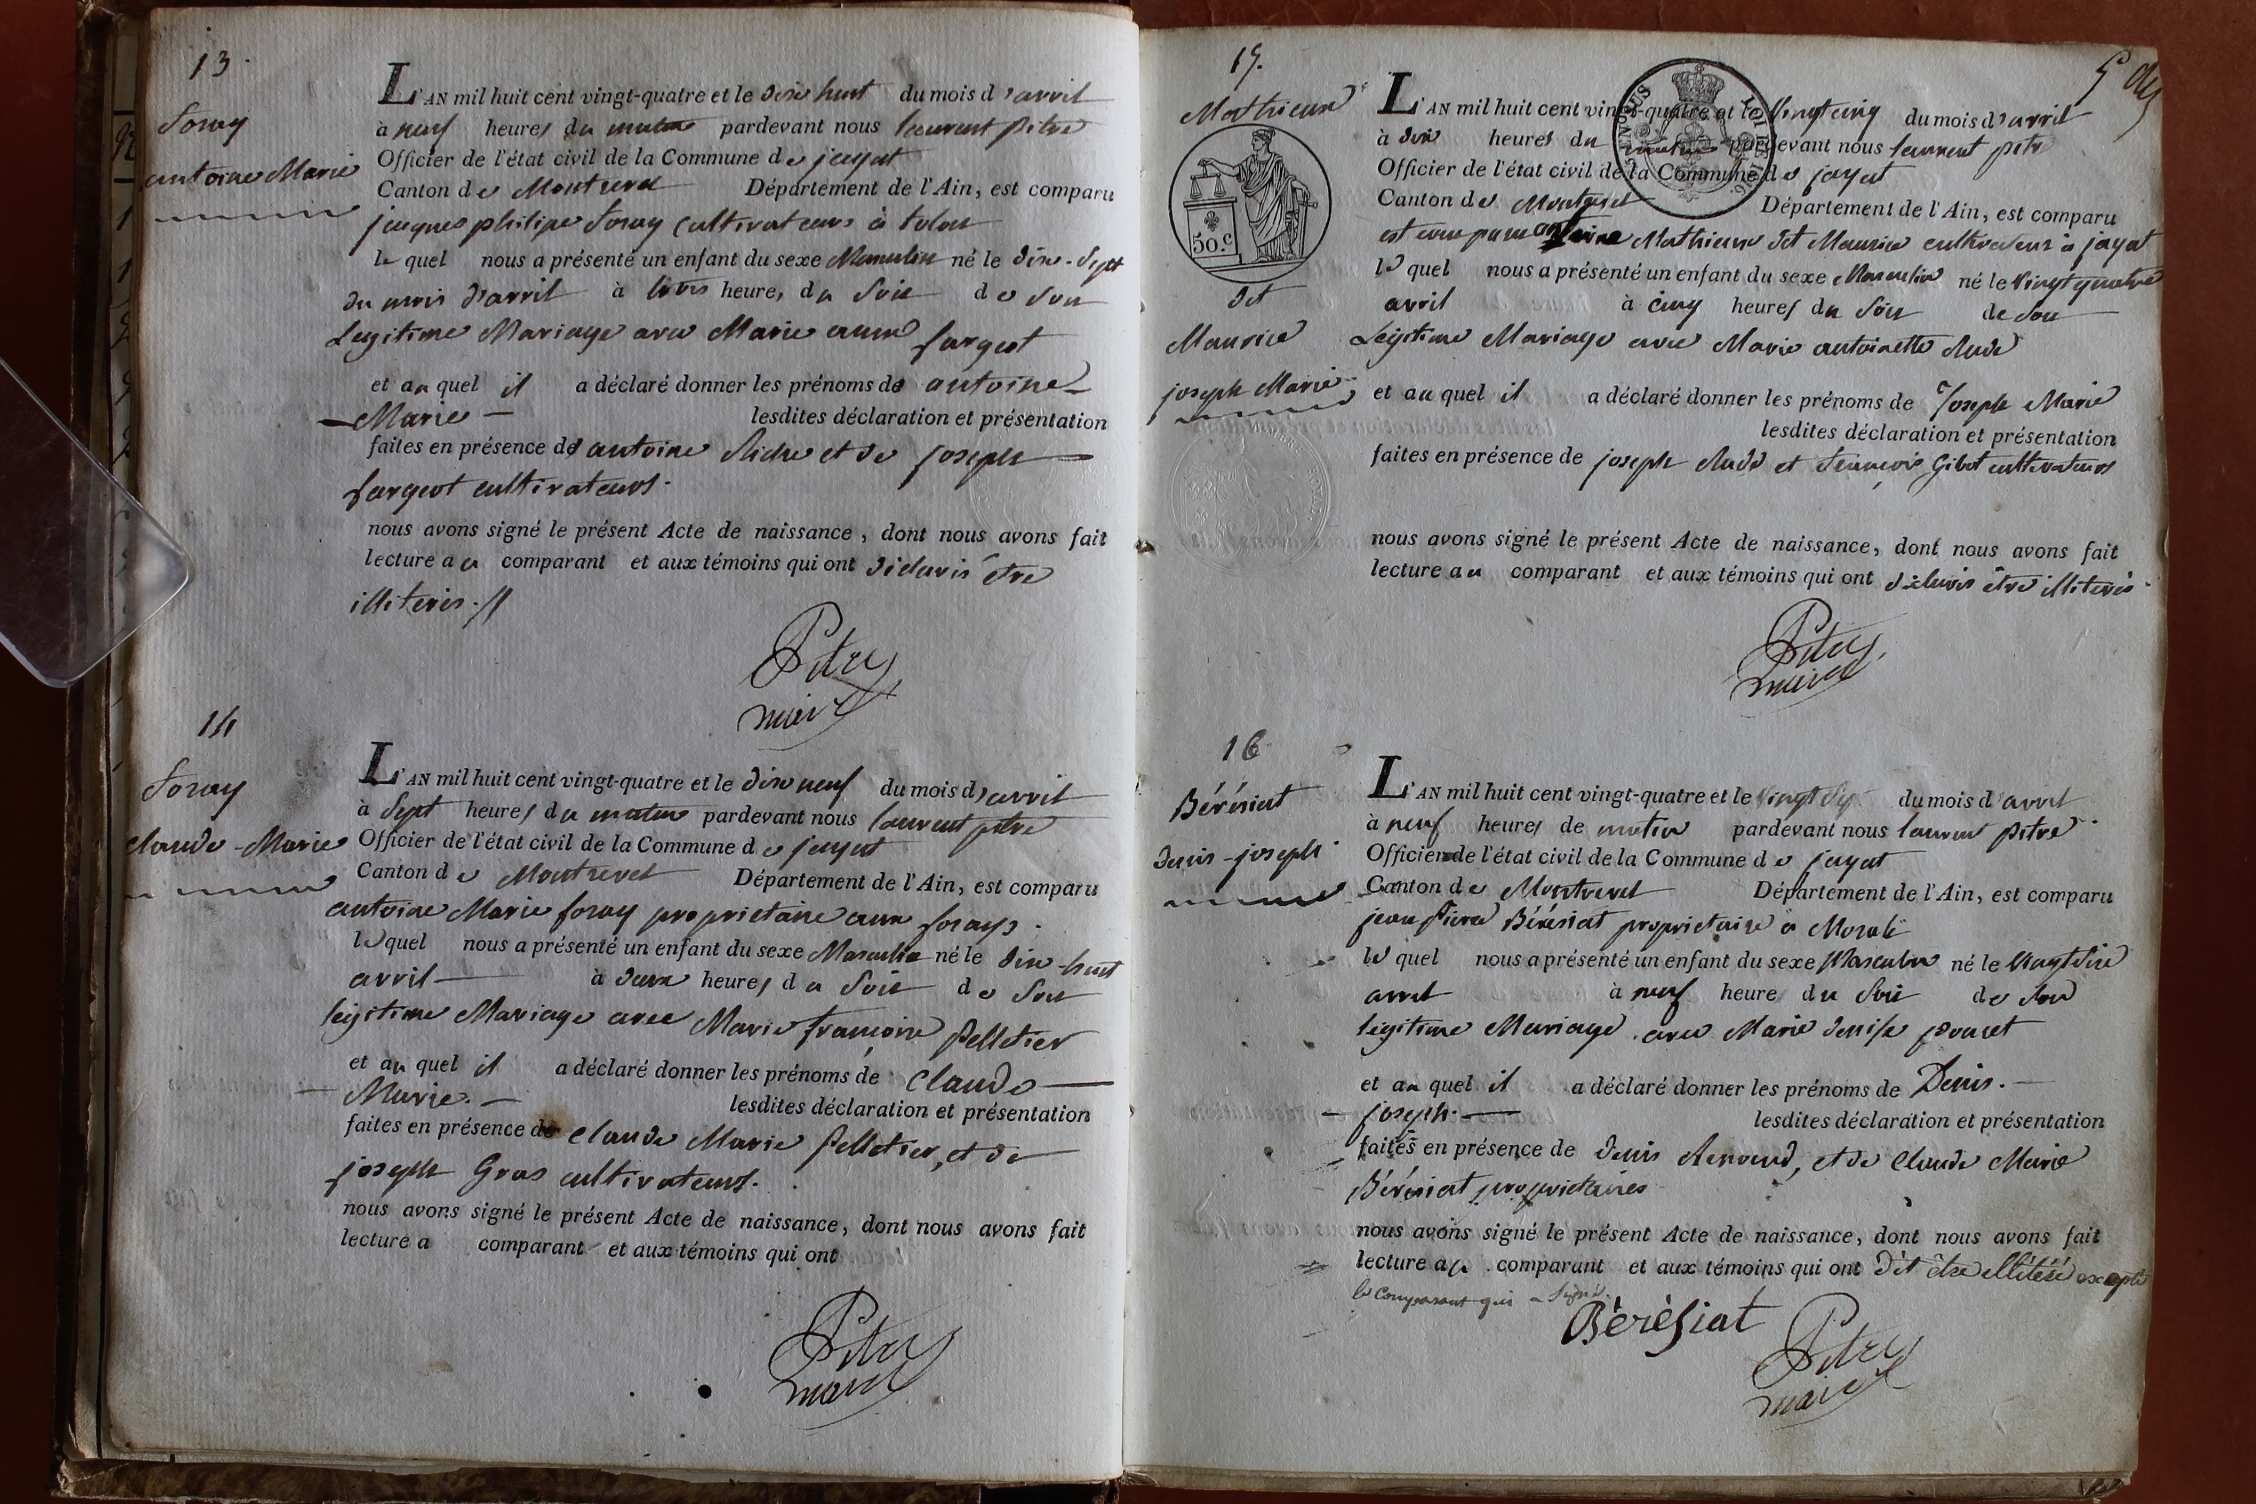 13.
Foray
antoine Marie
L'AN mil huit cent vingt-quatre et le dix huit du mois d'avril
à neuf heures du matin pardevant nous laurent pitre
Officier de l'état civil de la Commune de jayat
Canton de Montrevel Département de l'Ain, est comparu
jacques philipe foray cultivateur à
le quel nous a présenté un enfant du sexe Masculin né le dix-sept
du mois d'avril à trois heures du Soir de son
Legitime Mariage avec Marie anne fargeot
et au quel il a déclaré donner les prénoms de antoine
Marie lesdites déclaration et présentation
faites en présence de antoine et de joseph
fargeot cultivateurs.
nous avons signé le présent Acte de naissance, dont nous avons fait
lecture au comparant et aux témoins qui ont déclarés être
illiterés.
Pitre
maire
14
Foray
claude-Marie
L'AN mil huit cent vingt-quatre et le dix neuf du mois d'avril
à Sept heures du matin pardevant nous laurent pitre
Officier de l'état civil de la Commune de jayat
Canton de Montrevel Département de l'Ain, est comparu
antoine Marie foray proprietaire aux forays.
le quel nous a présenté un enfant du sexe Masculin né le dix-huit
avril à deux heures du Soir de Son
légitime Mariage avec Marie françoise Pelletier
et au quel il a déclaré donner les prénoms de Claude
Marie. lesdites déclaration et présentation
faites en présence de Claude Marie Pelletier, et de
joseph Gras cultivateurs.
nous avons signé le présent Acte de naissance, dont nous avons fait
lecture a comparant et aux témoins qui ont
Pitre
maire
15.
Mathieux
50.c
dit
Maurice
joseph Marie
L'AN mil huit cent vingt-quatre et le Vingt cinq du mois d'avril
à dix heures du matin pardevant nous laurent pitre
Officier de l'état civil de la Commune de jayat
Canton de Montrevel Département de l'Ain, est comparu
est comparu antoine Mathieux dit Maurice cultivateur à jayat
le quel nous a présenté un enfant du sexe Masculin né le Vingt quatre
avril à cinq heures du Soir de Son
Légitime Mariage avec Marie antoinette
et au quel il a déclaré donner les prénoms de Joseph Marie
lesdites déclaration et présentation
faites en présence de joseph et françois Gibot cultivateurs
nous avons signé le présent Acte de naissance, dont nous avons fait
lecture au comparant et aux témoins qui ont déclarés être illiterés.
Pitre
maire
16
Bérésiat
denis-joseph
L'AN mil huit cent vingt-quatre et le Vingt du mois d'avril
à neuf heures de matin pardevant nous laurent pitre
Officier de l'état civil de la Commune de jayat
Canton de Montrevel Département de l'Ain, est comparu
jean Pierre Bérésiat proprietaire à
le quel nous a présenté un enfant du sexe Masculin né le Vingt Six
avril à neuf heure du Soir de Son
légitime Mariage avec Marie denise
et au quel il a déclaré donner les prénoms de Denis.
joseph. lesdites déclaration et présentation
faites en présence de denis Renoud, et de Claude Marie
Bérésiat proprietaires
nous avons signé le présent Acte de naissance, dont nous avons fait
lecture au comparant et aux témoins qui ont dit être illitéré excepté
le comparant qui a Signé.
Bérésiat
Pitre
maire